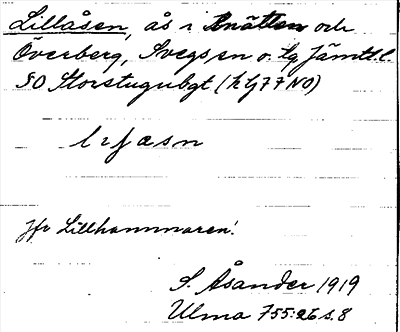 Lillåsen, ås i Knätten och
Överberg, Svegs sn o. tg, Jämtl. l.
SO Storstugubgt (h tj 77 NO)
Jfr Lillhammaren!
S. Åsander 1919
Ulma 755:26 s. 8